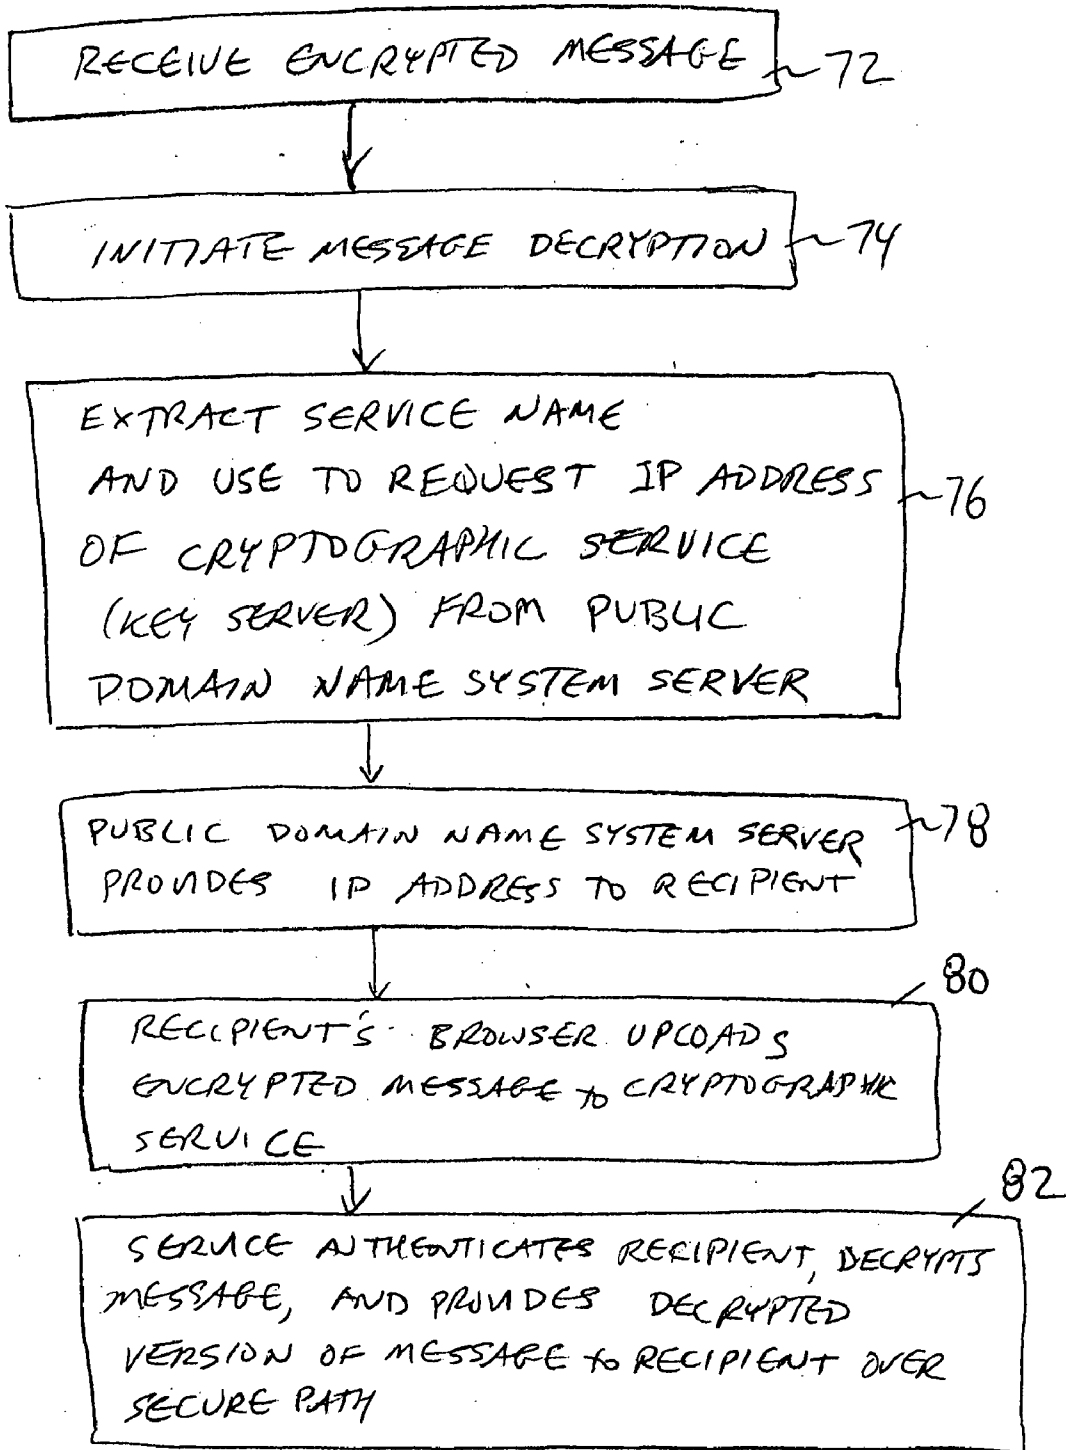 RECEIVE ENCRYPTED MESSAGE 72
INITIATE MESSAGE DECRYPTION 74
EXTRACT SERVICE NAME
AND USE TO REQUEST IP ADDRESS 76
OF CRYPTOGRAPHIC SERVICE
(KEY SERVER) FROM PUBLIC
DOMAIN NAME SYSTEM SERVER
PUBLIC DOMAIN NAME SYSTEM SERVER 78
PROVIDES IP ADDRESS TO RECIPIENT
80
RECIPIENT'S BROWSER UPLOADS
ENCRYPTED MESSAGE to CRYPTOGRAPHIC
SERVICE
82
SERVICE AUTHENTICATES RECIPIENT, DECRYPTS
MESSAGE, AND PROVIDES DECRYPTED
VERSION OF MESSAGE to RECIPIENT OVER
SECURE PATH